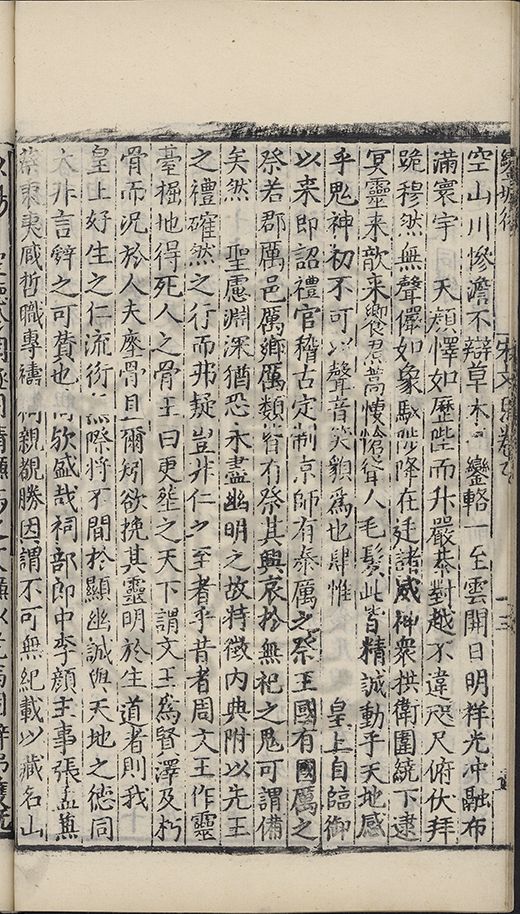 空山川慘澹不辯草木 鑾輅一至雲開日明祥光冲融布
滿寰宇 天顔懌如歷陛而升嚴恭對越不違咫尺俯伏拜
跪穆然無聲儼如象馭陟降在廷諸威神衆拱衛圍繞下逮
冥靈來歆來饗焄蒿悽愴聳人毛髮此皆精誠動乎天地感
乎鬼神初不可以聲音笑貌爲也肆惟 皇上自臨御
以来即詔禮官稽古定制京師有泰厲之祭王國有國厲之
祭若郡厲邑厲鄉厲類皆有祭其興哀於無祀之鬼可謂備
矣然 聖慮淵深猶恐未盡幽明之故特徵内典附以先王
之禮確然之行而弗疑豈非仁之至者乎昔者周文王作靈
臺掘地得死人之骨王曰更葬之天下謂文王爲賢澤及朽
骨而况於人夫瘞骨且爾矧欲挽其靈明於生道者則我
皇上好生之仁流衍無際將不間於顯幽誠與天地之德同
大非言辭之可贊也 於戲盛哉祠部郎中李顔主事張孟兼
蔡秉夷臧哲職專禱祠親覩勝因謂不可無紀載以藏名山